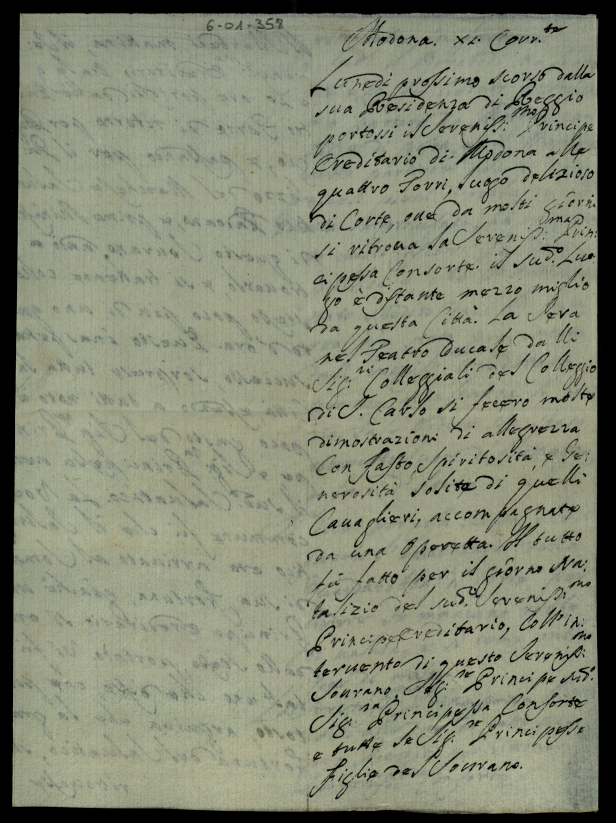 6-01-358
Modona. XI. Corr.te
Lunedi prossimo scorso dalla
sua Residenza di Reggio
portossi il Sereniss:mo Principe
Ereditario di Modona alle
quattro Torri, luogo delizioso
di Corte, oue da molti giorni
si ritroua la Sereniss:ma Prin:
cipessa Consorte. il sud.o Luo:
go è distante mezzo miglio
da questa Città. La sera
nel Teatro Ducale dalli
Sig:ri Colleggiali del Colleggio
di S. Carlo si fecero molte
dimostrazioni di allegrezza
Con fasto, Spiritosità, e Ge:
nerosità solite di quelli
Cauaglieri, accompagnate
da una Operetta. Il tutto
fù fatto per il giorno Na:
talizio del sud.o Sereniss:mo
Principe Ereditario, coll'in:
teruento di questo Sereniss:mo
Sourano, Sig:re Principe sud.o
Sig:ra Principessa Consorte
e tutte le Sig:re Principesse
figlie del Sourano.